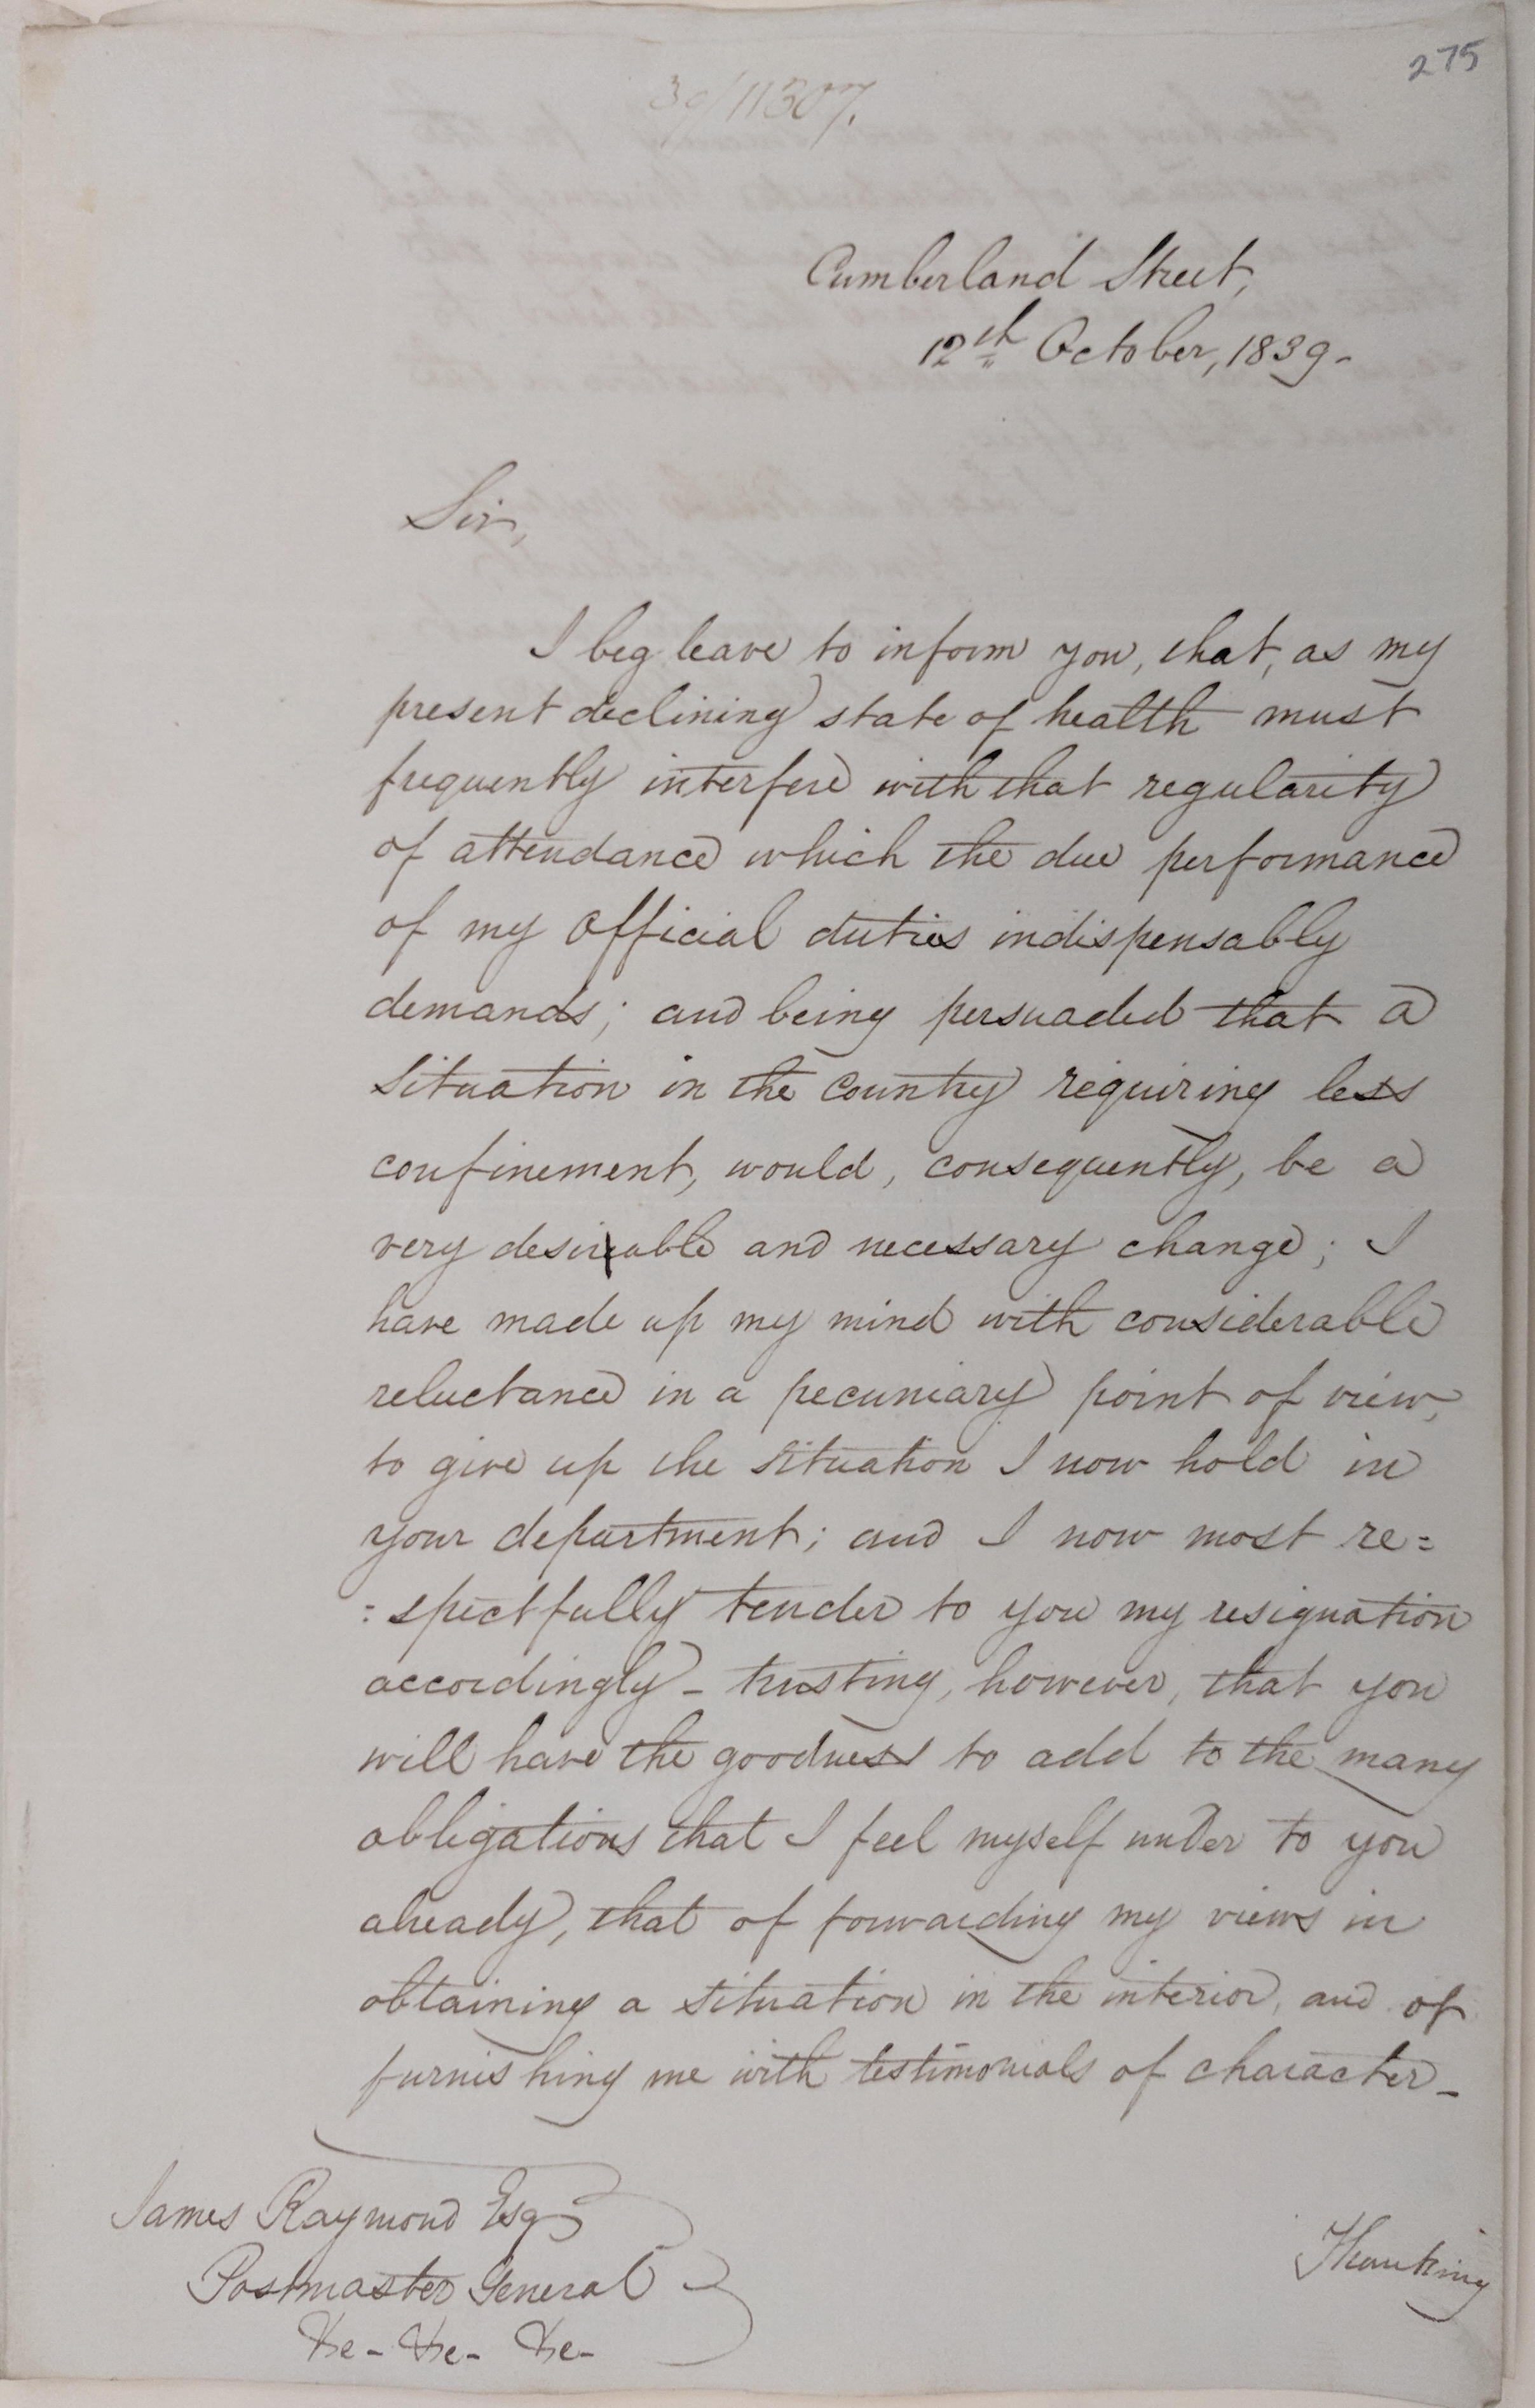 275
39/11307.
Cumberland Street,
12th October, 1839-
Sir,
I beg leave to inform you, that, as my
present declining state of health must
frequently interfere with that regularity
of attendance which the due performance
of my Official duties indispensably
demands; and being persuaded that a
situation in the Country requiring less
confinement, would, consequently, be a
very desirable and necessary change; I
have made up my mind with considerable
reluctance in a pecuniary point of view,
to give up the situation I now hold in
your department; and I now most re=
=spectfully tender to you my resignation
accordingly - trusting, however, that you
will have the goodness to add to the many
obligations that I feel myself under to you
already, that of forwarding my views in
obtaining a situation in the interior, and of
furnishing me with testimonials of character-
James Raymond Esqr
Postmaster General
&c- &c- &c-
Thanking